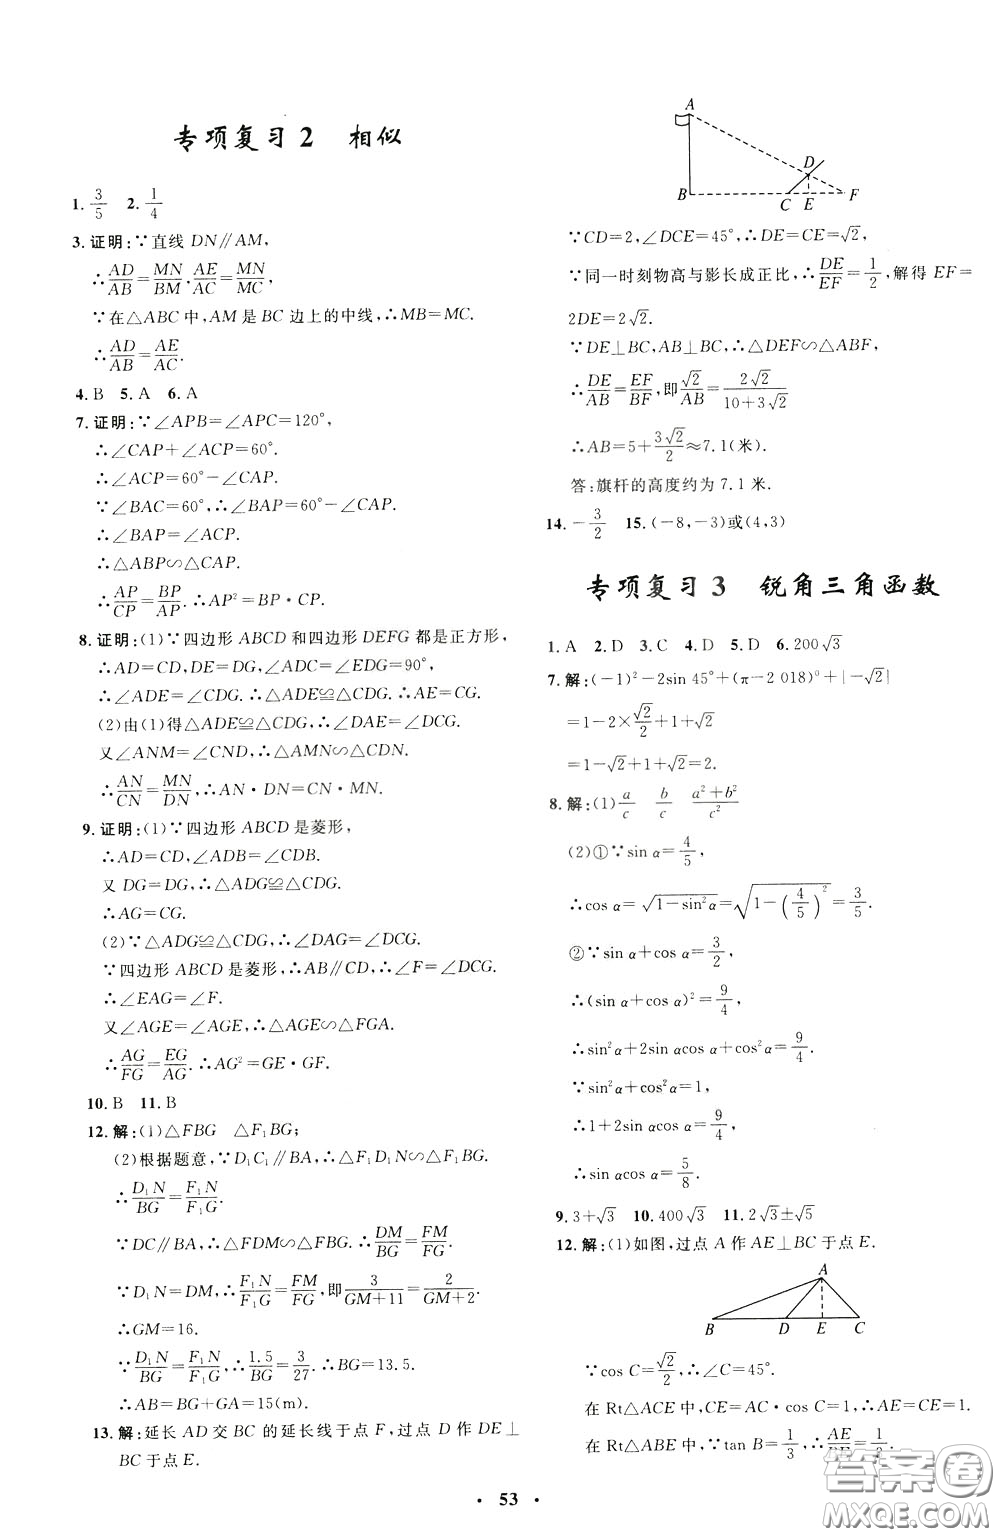 专项复习2 相似
1. 3/5 2. 1/4
3. 证明:∵直线 DN∥AM,
∴AD/AB=MN/BM,AE/AC=MN/MC.
∵在△ABC中,AM是BC边上的中线,∴MB=MC.
∴AD/AB=AE/AC.
4. B 5. A 6. A
7. 证明:∵∠APB=∠APC=120°,
∴∠CAP+∠ACP=60°.
∴∠ACP=60°-∠CAP.
∵∠BAC=60°,∴∠BAP=60°-∠CAP.
∴∠BAP=∠ACP.
∴△ABP∽△CAP.
∴AP/CP=BP/AP.∴AP²=BP·CP.
8. 证明:(1)∵四边形ABCD和四边形DEFG都是正方形,
∴AD=CD,DE=DG,∠ADC=∠EDG=90°,
∴∠ADE=∠CDG.∴△ADE≌△CDG.∴AE=CG.
(2)由(1)得△ADE≌△CDG,∴∠DAE=∠DCG.
又∠ANM=∠CND,∴△AMN∽△CDN.
∴AN/CN=MN/DN,∴AN·DN=CN·MN.
9. 证明:(1)∵四边形ABCD是菱形,
∴AD=CD,∠ADB=∠CDB.
又DG=DG,∴△ADG≌△CDG.
∴AG=CG.
(2)∵△ADG≌△CDG,∴∠DAG=∠DCG.
∵四边形ABCD是菱形,∴AB∥CD,∴∠F=∠DCG.
∴∠EAG=∠F.
又∠AGE=∠AGE,∴△AGE∽△FGA.
∴AG/FG=EG/AG.∴AG²=GE·GF.
10. B 11. B
12. 解:(1)△FBG △F₁BG;
(2)根据题意,∵D₁C₁∥BA,∴△F₁D₁N∽△F₁BG.
∴D₁N/BG=F₁N/F₁G.
∵DC∥BA,∴△FDM∽△FBG.∴DM/BG=FM/FG.
∵D₁N=DM,∴F₁N/F₁G=FM/FG,即3/(GM+11)=2/(GM+2).
∴GM=16.
∵D₁N/BG=F₁N/F₁G,∴1.5/BG=3/27.∴BG=13.5.
∴AB=BG+GA=15(m).
13. 解:延长AD交BC的延长线于点F,过点D作DE⊥
BC于点E.
A
D
B
C
E
F
∵CD=2,∠DCE=45°,∴DE=CE=√2,
∵同一时刻物高与影长成正比,∴DE/EF=1/2,解得EF=
2DE=2√2.
∵DE⊥BC,AB⊥BC,∴△DEF∽△ABF,
∴DE/AB=EF/BF,即√2/AB=2√2/(10+3√2)
∴AB=5+3√2/2≈7.1(米).
答:旗杆的高度约为7.1米.
14. -3/2 15. (-8,-3)或(4,3)
专项复习3 锐角三角函数
1. A 2. D 3. C 4. D 5. D 6. 200√3
7. 解:(-1)²-2sin 45°+(π-2 018)⁰+|-√2|
=1-2×√2/2+1+√2
=1-√2+1+√2=2.
8. 解:(1)a/c b/c (a²+b²)/c²
(2)①∵sin α=4/5,
∴cos α=√(1-sin²α)=√(1-(4/5)²)=3/5.
②∵sin α+cos α=3/2,
∴(sin α+cos α)²=9/4,
∴sin²α+2sin αcos α+cos²α=9/4.
∵sin²α+cos²α=1,
∴1+2sin αcos α=9/4,
∴sin αcos α=5/8.
9. 3+√3 10. 400√3 11. 2√3±√5
12. 解:(1)如图,过点A作AE⊥BC于点E.
A
B
D
E
C
∵cos C=√2/2,∴∠C=45°.
在Rt△ACE中,CE=AC·cos C=1,∴AE=CE=1.
在Rt△ABE中,∵tan B=1/3,∴AE/BE=
答案圈
MXQE.COM
· 53 ·